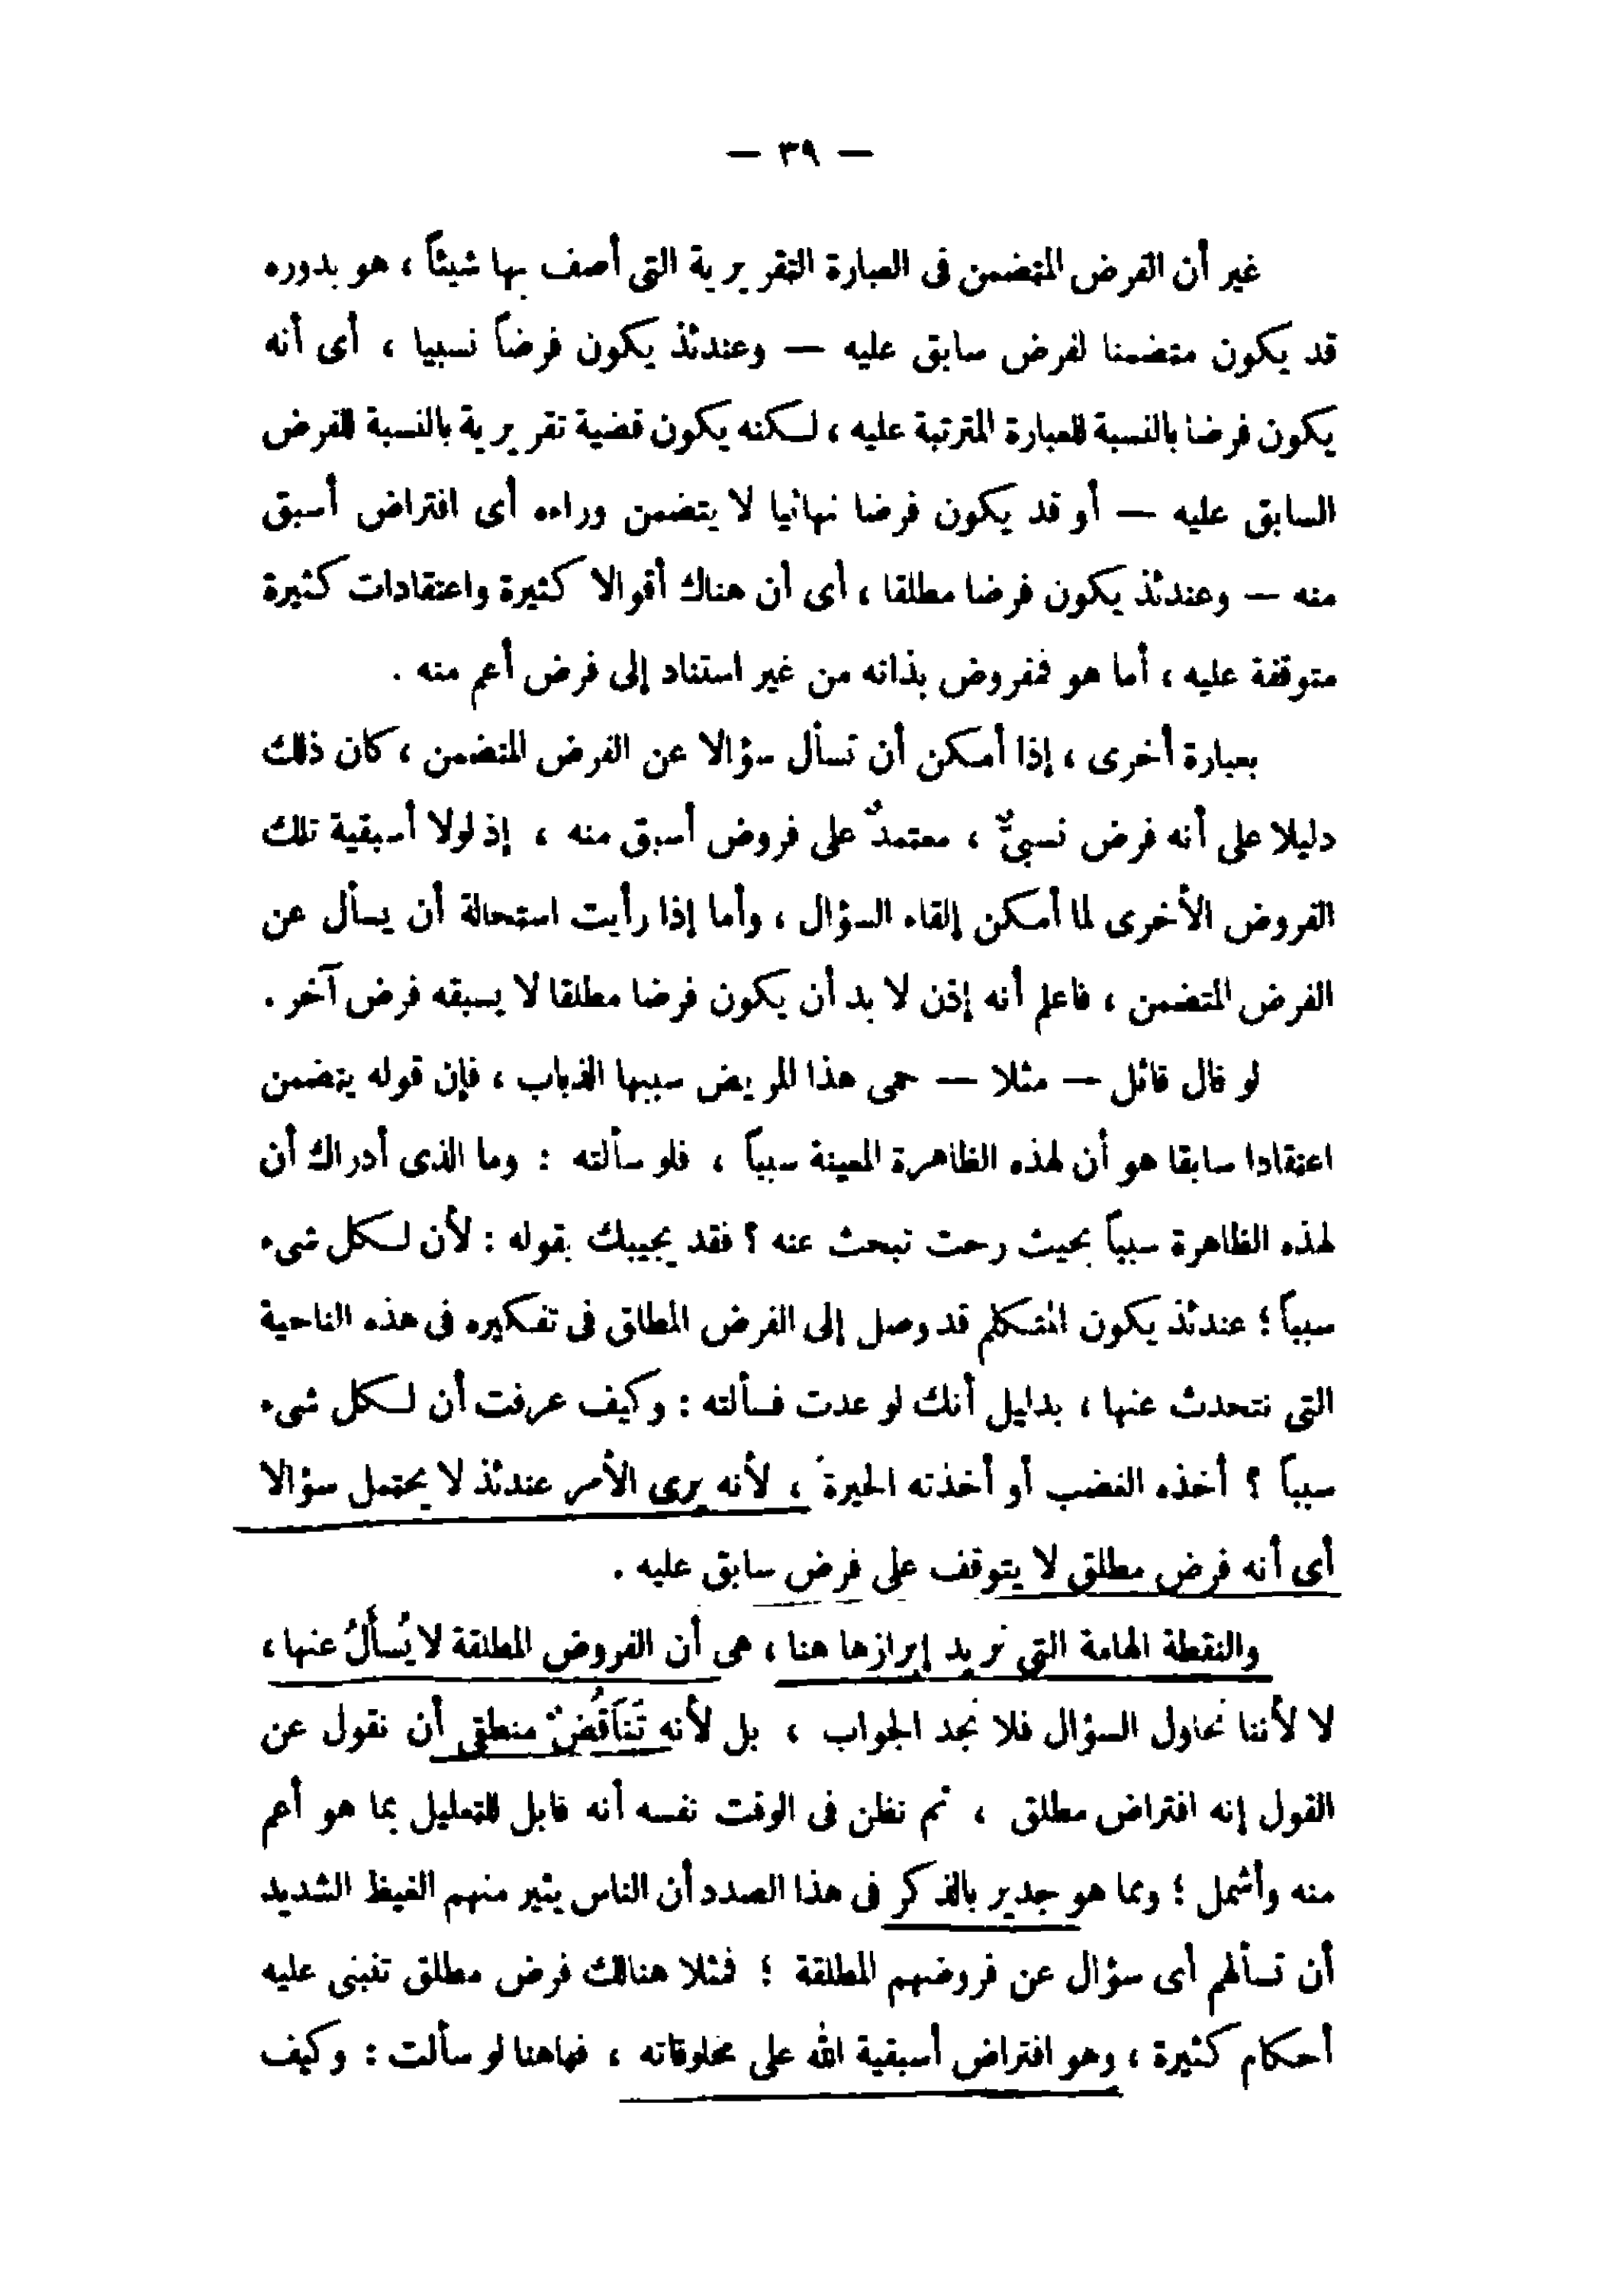 — ٣٩ —
غير أن الفرض المتضمن فى العبارة التقريرية التى أصف بها شيئاً ، هو بدوره
قد يكون متضمنا لفرض سابق عليه — وعندئذ يكون فرضاً نسبيا ، أى أنه
يكون فرضا بالنسبة للعبارة المترتبة عليه ، لكنه يكون قضية تقريرية بالنسبة للفرض
السابق عليه — أو قد يكون فرضا نهائيا لا يتضمن وراءه أى افتراض أسبق
منه — وعندئذ يكون فرضا مطلقا ، أى أن هناك أقوالا كثيرة واعتقادات كثيرة
متوقفة عليه ، أما هو فمفروض بذاته من غير استناد إلى فرض أعم منه .
بعبارة أخرى ، إذا أمكن أن تسأل سؤالا عن الفرض المتضمن ، كان ذلك
دليلا على أنه فرض نسبىٌّ ، معتمدٌ على فروض أسبق منه ، إذ لولا أسبقية تلك
الفروض الأخرى لما أمكن إلقاء السؤال ، وأما إذا رأيت استحالة أن يسأل عن
الفرض المتضمن ، فاعلم أنه إذن لا بد أن يكون فرضا مطلقا لا يسبقه فرض آخر .
لو قال قائل — مثلا — حمى هذا المريض سببها الذباب ، فإن قوله يتضمن
اعتقادا سابقا هو أن لهذه الظاهرة المعينة سبباً ، فلو سألته : وما الذى أدراك أن
لهذه الظاهرة سبباً بحيث رحت تبحث عنه ؟ فقد يجيبك بقوله : لأن لكل شىء
سبباً ؛ عندئذ يكون المتكلم قد وصل إلى الفرض المطلق فى تفكيره فى هذه الناحية
التى نتحدث عنها ، بدليل أنك لو عدت فسألته : وكيف عرفت أن لكل شىء
سبباً ؟ أخذه الغضب أو أخذته الحيرة ، لأنه يرى الأمر عندئذ لا يحتمل سؤالا
أى أنه فرض مطلق لا يتوقف على فرض سابق عليه .
والنقطة الهامة التى نريد إبرازها هنا ، هى أن الفروض المطلقة لا يُسأَلُ عنها ،
لا لأننا نحاول السؤال فلا نجد الجواب ، بل لأنه تَنَاقُضٌ منطقى أن نقول عن
القول إنه افتراض مطلق ، ثم نظن فى الوقت نفسه أنه قابل للتعليل بما هو أعم
منه وأشمل ؛ ومما هو جدير بالذكر فى هذا الصدد أن الناس يثير منهم الغيظ الشديد
أن تسألهم أى سؤال عن فروضهم المطلقة ؛ فمثلا هنالك فرض مطلق تنبنى عليه
أحكام كثيرة ، وهو افتراض أسبقية الله على مخلوقاته ، فهاهنا لو سألت : وكيف